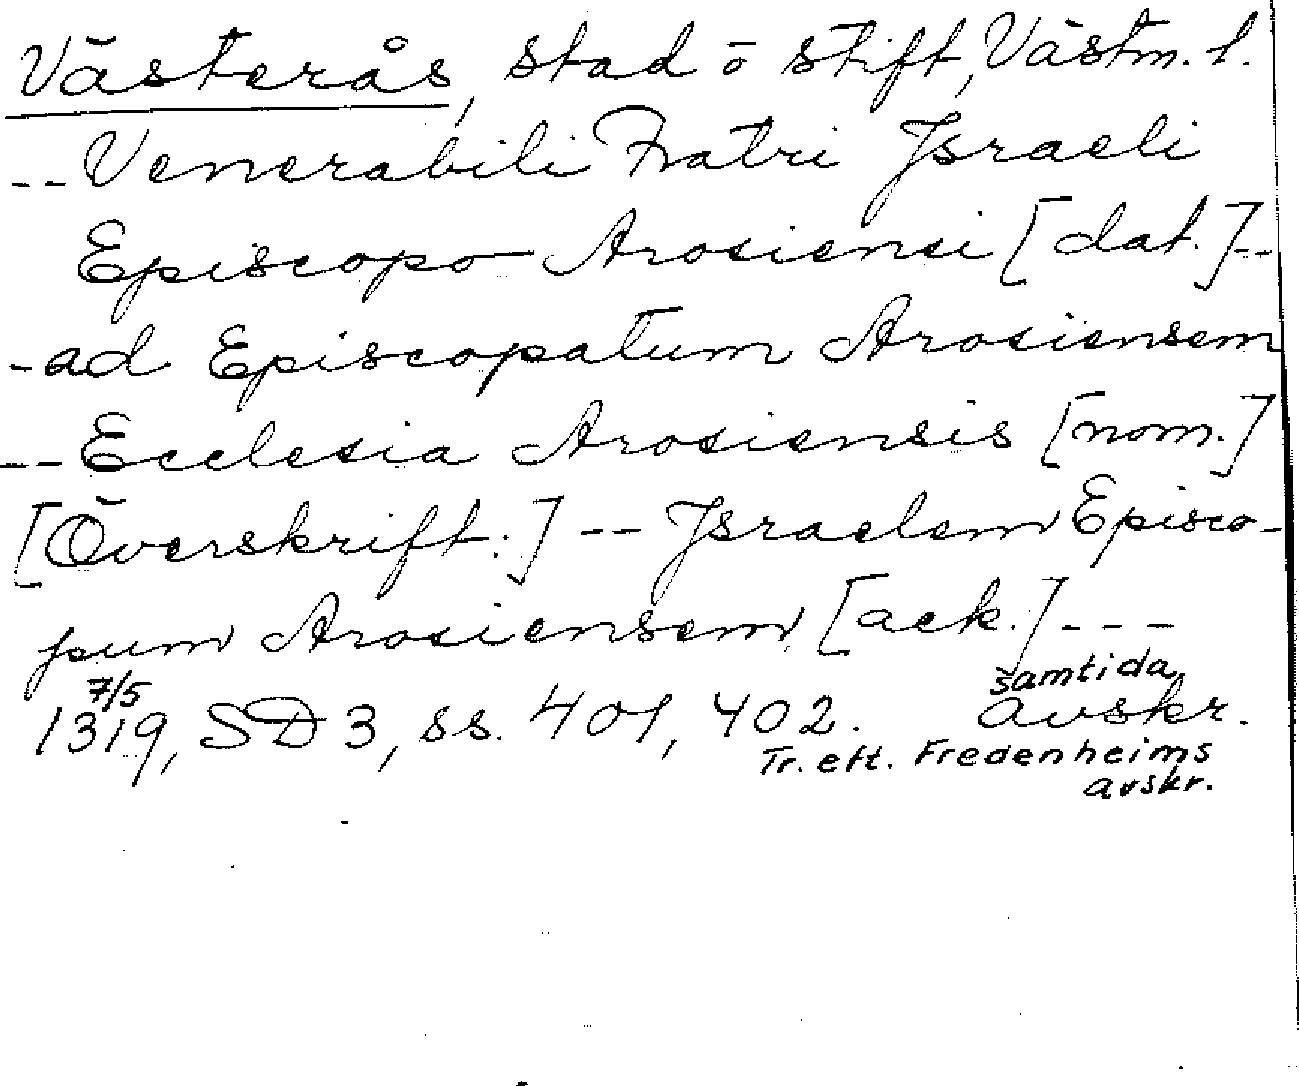 Västerås, stad o stift, Västm. l.
-- Venerabili Fratri Israeli
Episcopo Arosiensi [dat.] --
- ad Episcopatum Arosiensem
-- Ecclesia Arosiensis [nom.]
[Överskrift.] -- Israelem Episco-
pum Arosiensem [ack.] ---
7/5 samtida
1319, SD 3, ss. 401, 402. avskr.
Tr. eft. Fredenheims
avskr.